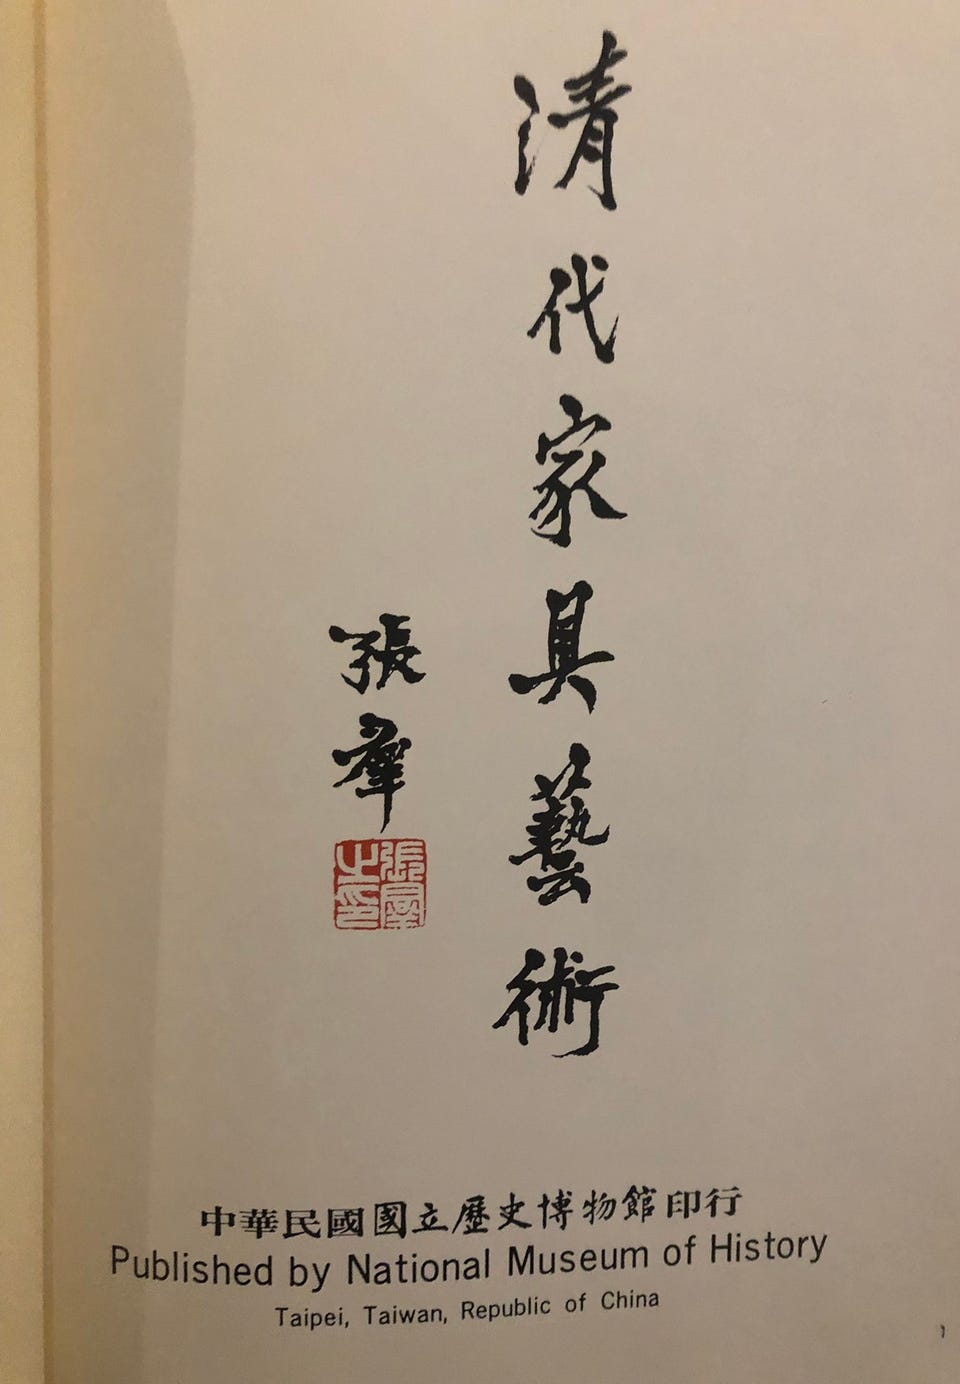 清代家具藝術
張羣
張羣之印
中華民國國立歷史博物館印行
Published by National Museum of History
Taipei, Taiwan, Republic of China